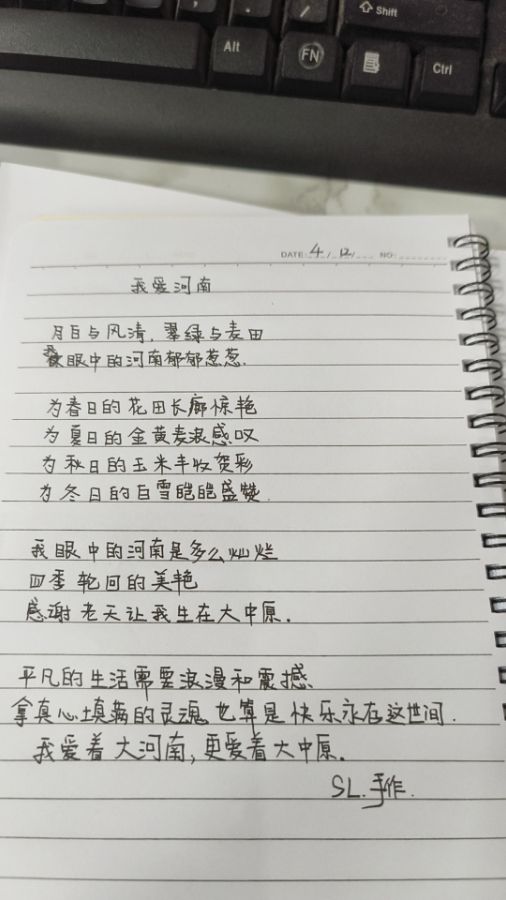 Alt
FN
Shift
Ctrl
DATE: 4 / 12 / NO:
我爱河南
月白与风清，翠绿与麦田
我眼中的河南郁郁葱葱.
为春日的花田长廊惊艳
为夏日的金黄麦浪感叹
为秋日的玉米丰收贺彩
为冬日的白雪皑皑盛赞.
我眼中的河南是多么灿烂
四季轮回的美艳
感谢老天让我生在大中原.
平凡的生活需要浪漫和震撼
拿真心填满的灵魂也算是快乐永在这世间.
我爱着大河南,更爱着大中原.
SL.手作.